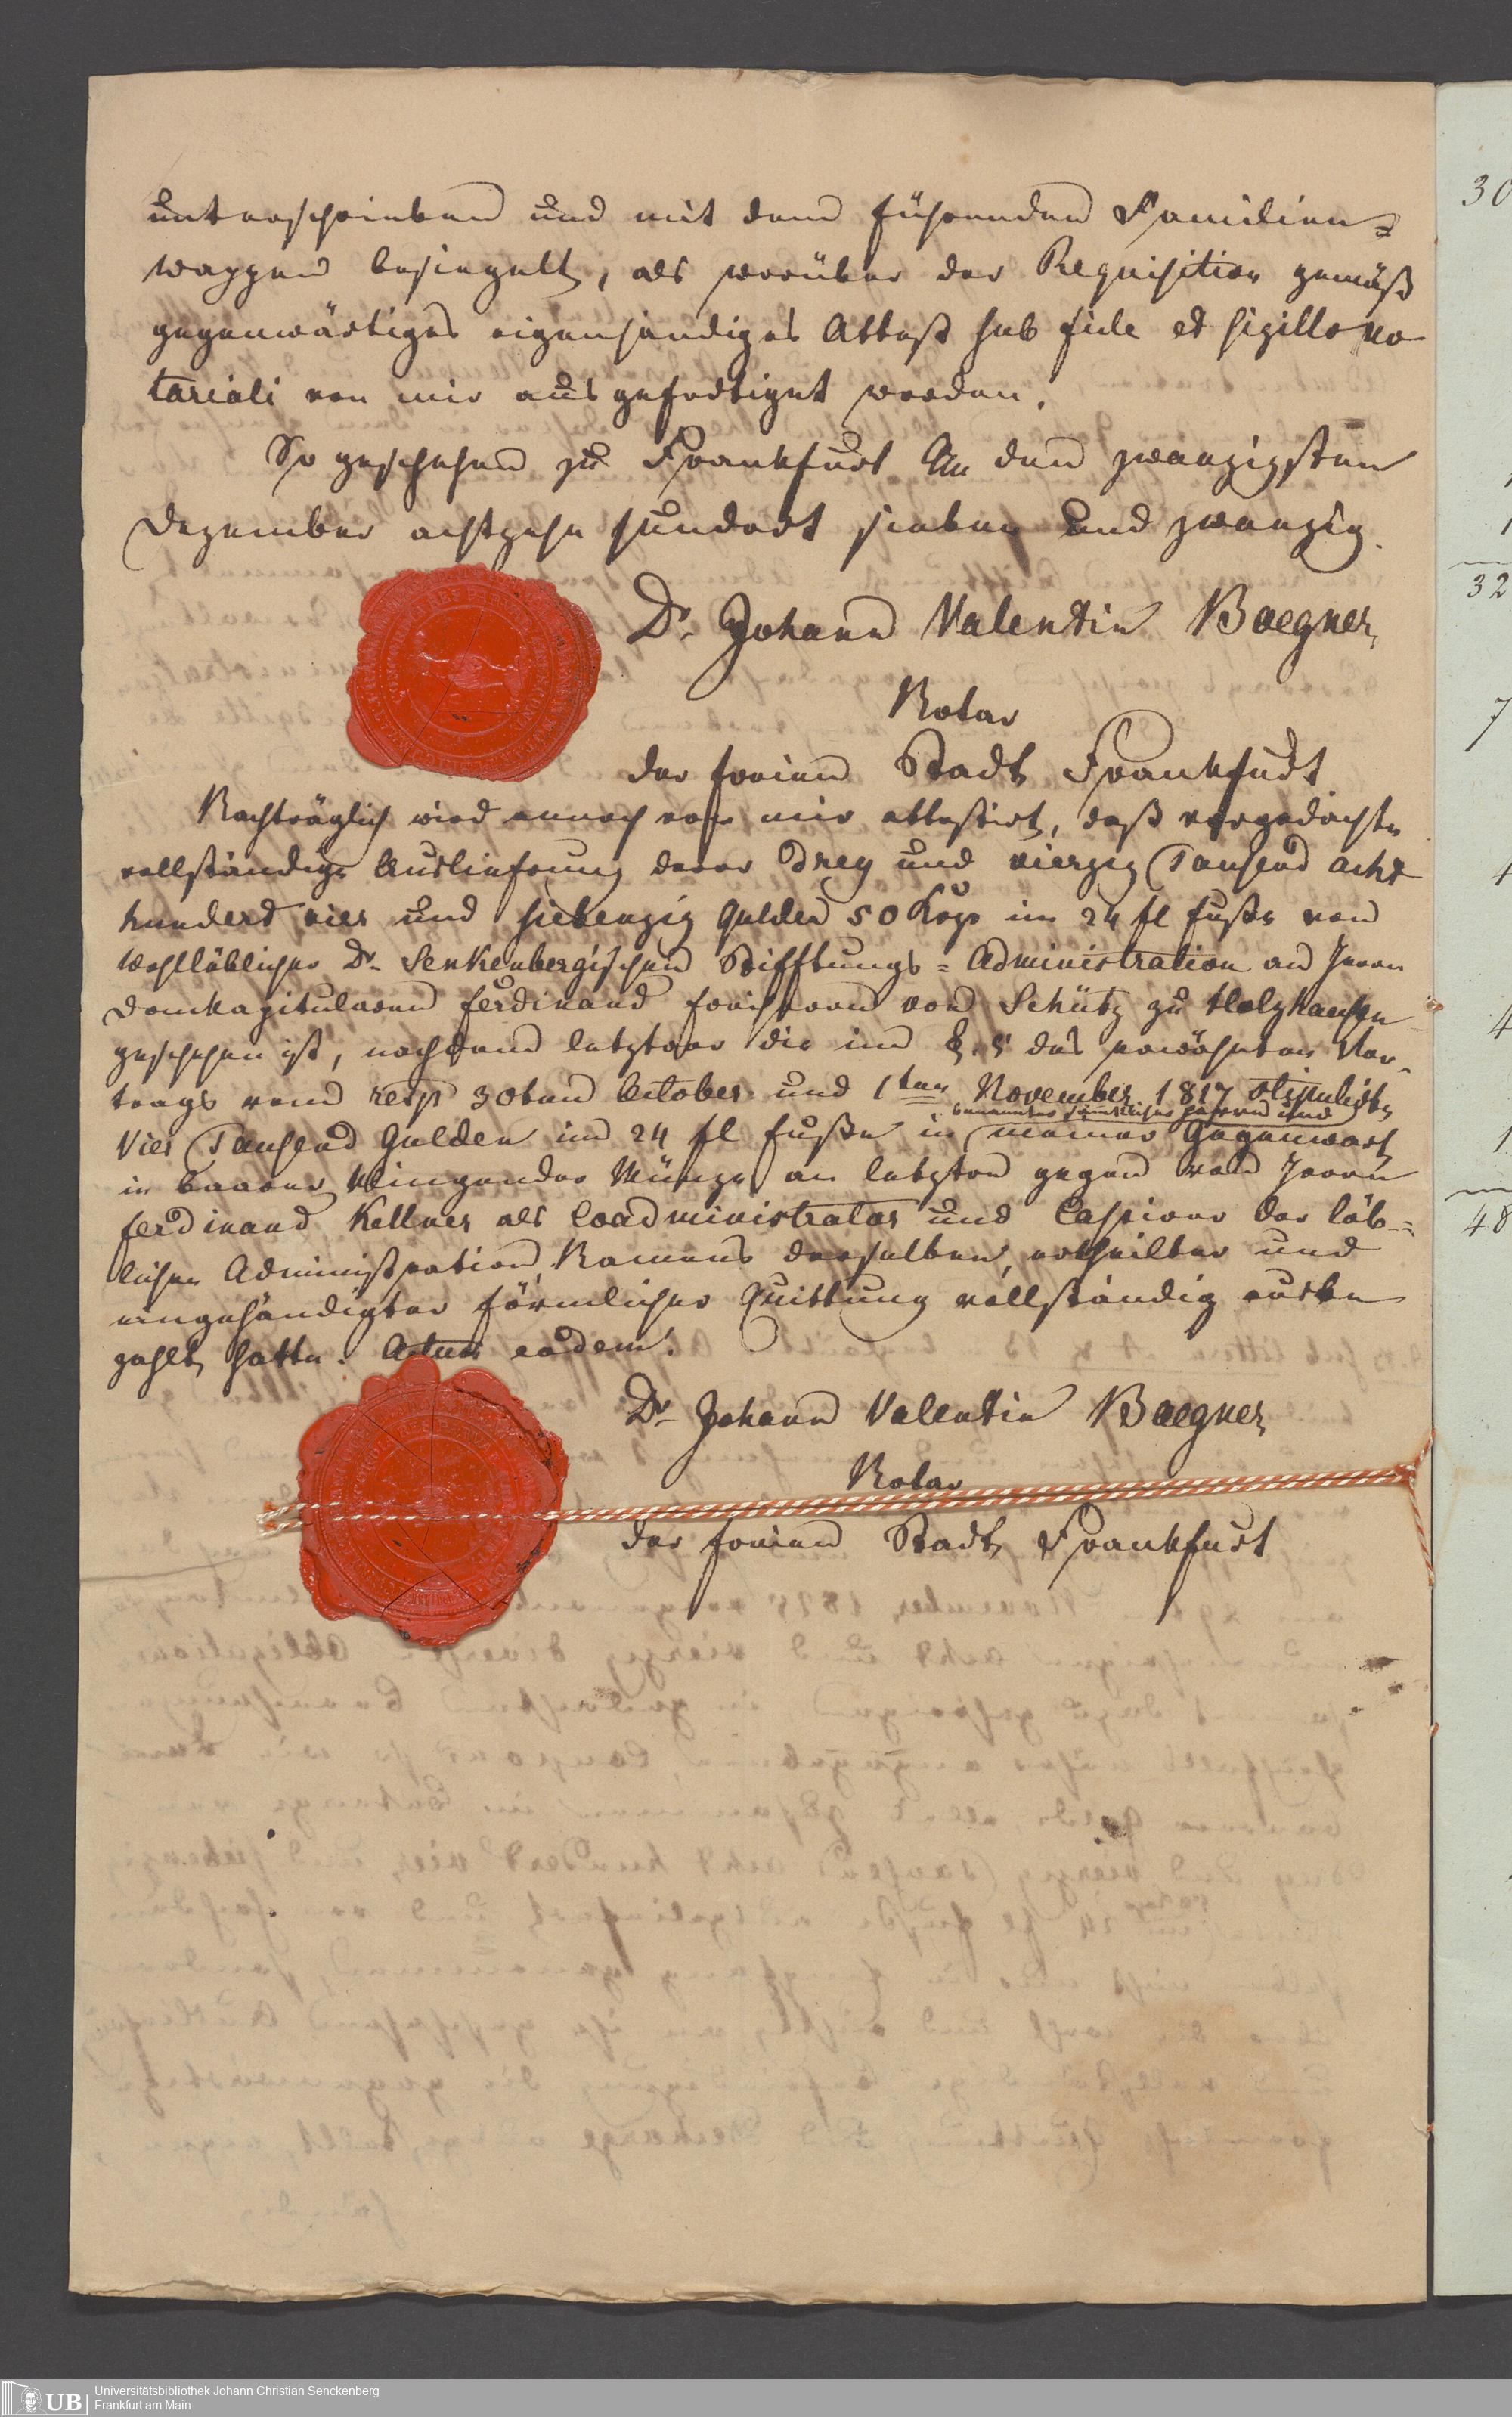 unterschrieben und mit dem führenden Familien=
wappen besiegelt, als worüber der Requisition gemäß
gegenwärtiges eigenhändiges Attest sub fide et sigillo no
tariali von mir ausgefertiget worden.
So geschehen zu Frankfurt am den zwanzigsten
Dezember achtzehn hundert sieben und zwanzig.
Dr. Johann Valentin Baegner
Notar
der freien Stadt Frankfurt
Nachträglich wird annoch von mir attestirt, daß vorgedachte
vollständige Auslieferung derer Drey und vierzig Tausend acht
hundert vier und siebenzig Gulden 50 Kreuzer im 24 fl Fuße von
Wohllöblicher Dr. Senkenbergischen Stifftungs=Administration an Herrn
Domkapitularen Ferdinand Freiherrn von Schütz zu Holzhausen
geschehen ist, nachdem letzterer die im §. 5 des erwähnten Ver
trags vom resp 30ten October und 1ten November 1817 stipulirte
benannter sämtlicher Herren und
Vier Tausend Gulden im 24 fl Fuße in meiner Gegenwart
in baarer klingender Münze an letztere gegen von Herrn
Ferdinand Kellner als Coadministrator und Cassierer der löb=
lichen Administration, Namens derselben, ertheilter und
eingehändigter förmlicher Quittung vollständig
zahlt hatte. Actum eodem.
Dr. Johann Valentin Baegner
Notar
der freien Stadt Frankfurt
30
1
1
32
7
1
4
1
48
UB
Universitätsbibliothek Johann Christian Senckenberg
Frankfurt am Main